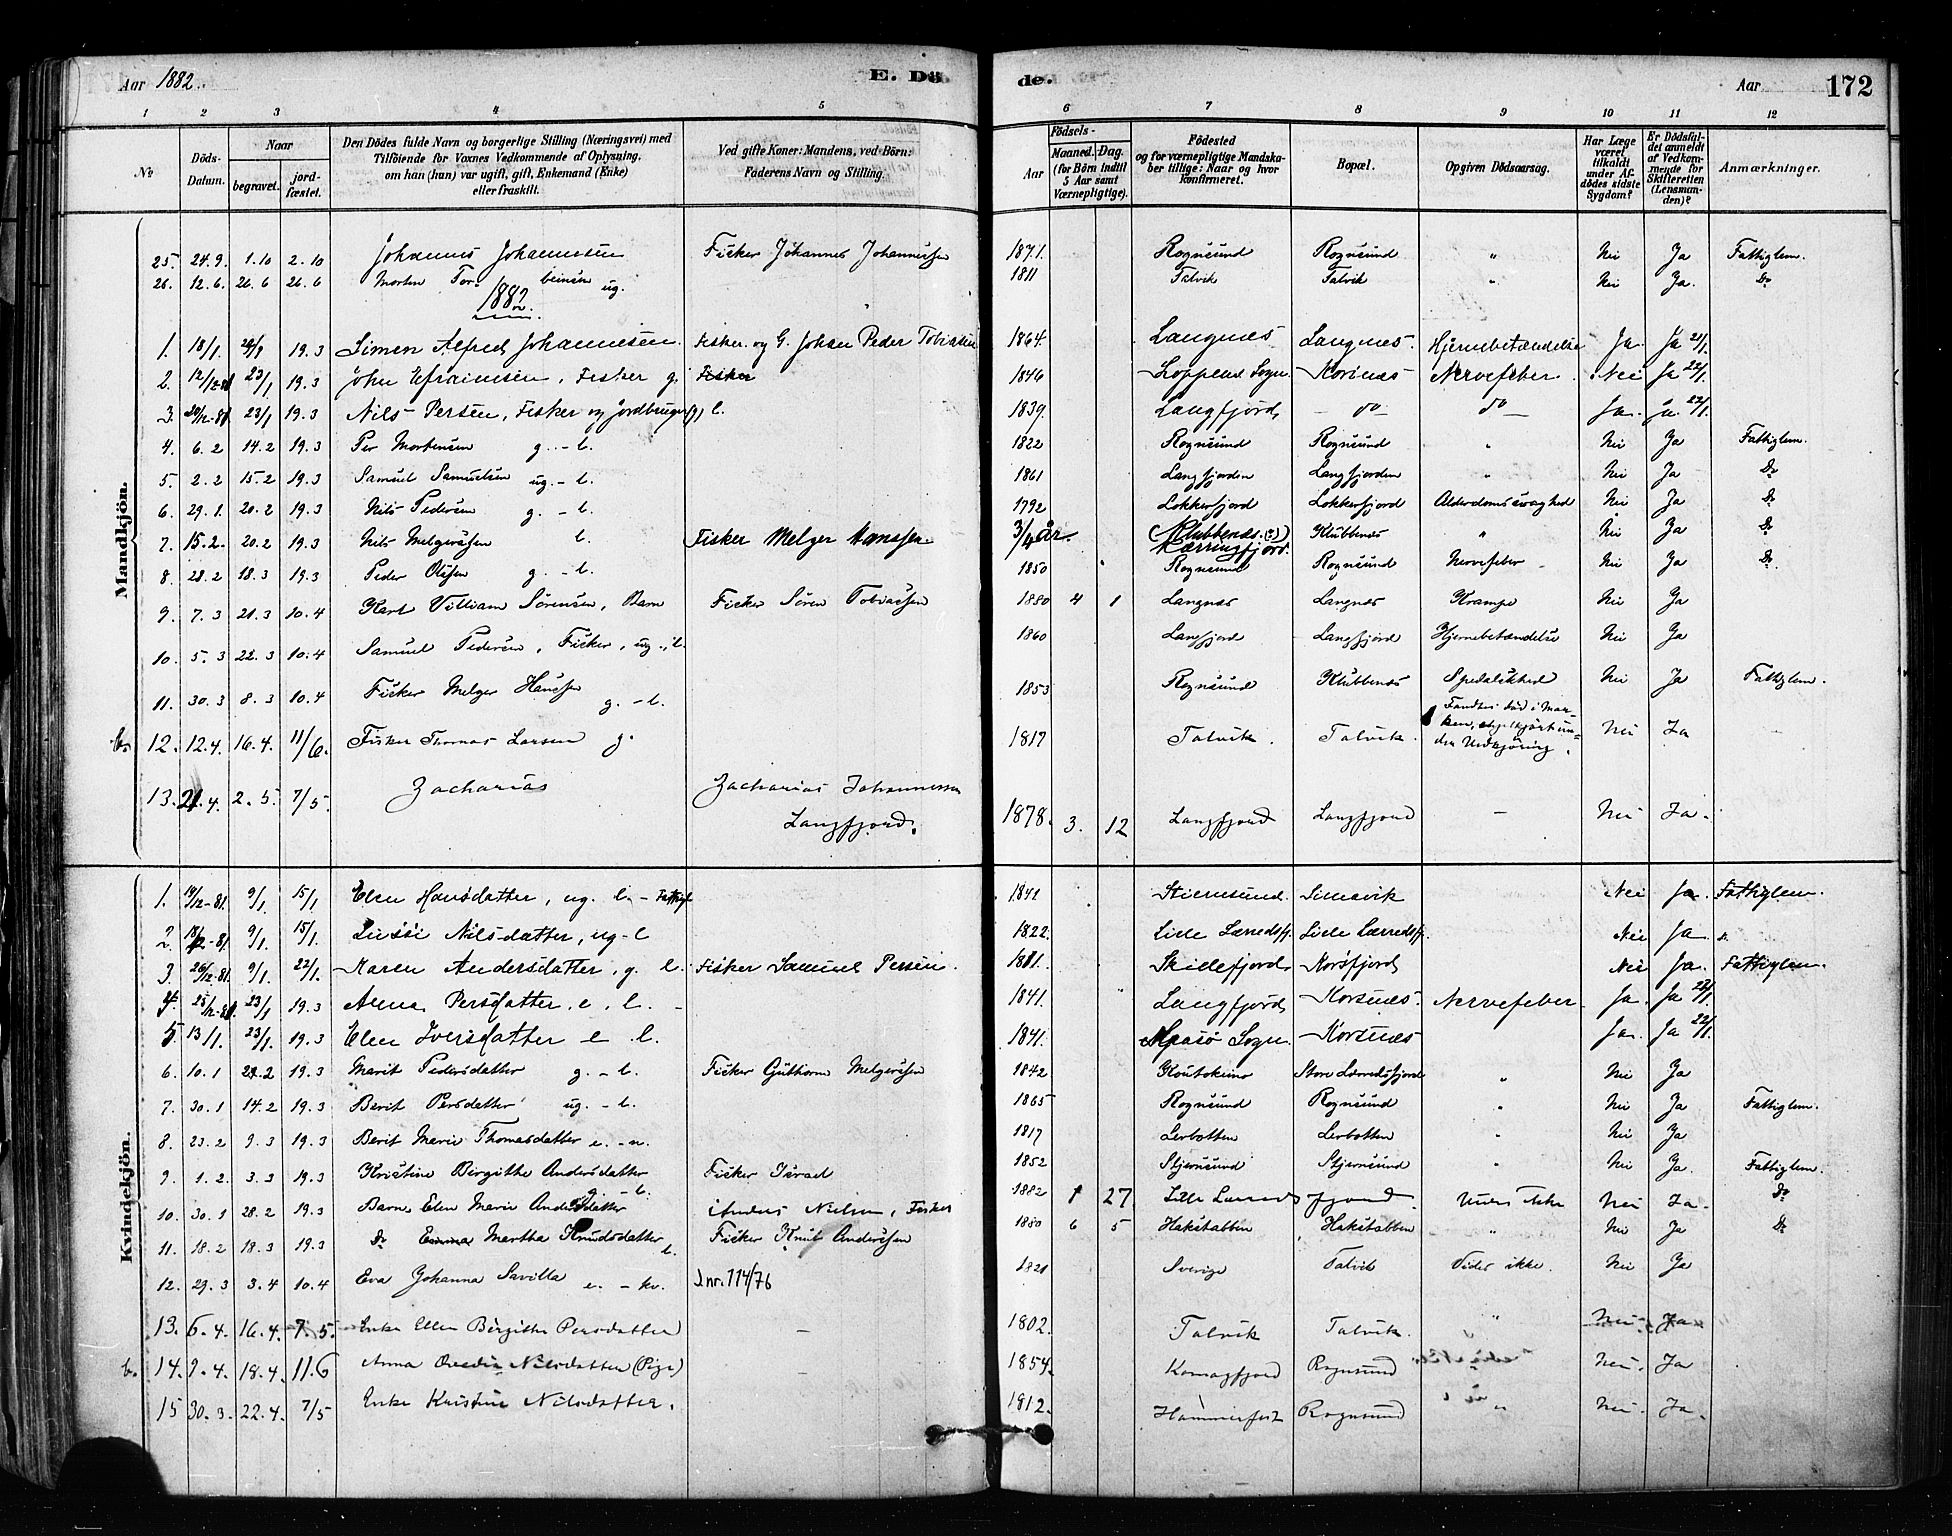 Aar 1882. E. Döde. Aar 172
1 2 3 4 5 6 7 8 9 10 11 12
No
Döds-Datum.
Naar
begravet.
jordfæstet.
Den Dödes fulde Navn og borgerlige Stilling (Næringsvei) med
Tilföiende for Voxnes Vedkommende af Oplysning,
om han (hun) var ugift, gift, Enkemand (Enke)
eller fraskilt.
Ved gifte Koner: Mandens, ved Börn:
Faderens Navn og Stilling.
Födsels-
Aar
Maaned. Dag.
(for Börn indtil
5 Aar samt
Værnepligtige).
Födested
og for værnepligtige Mandska-
ber tillige: Naar og hvor
konfirmeret.
Bopæl.
Opgiven Dödsaarsag.
Har Læge
været
tilkaldt
under Af-
dödes sidste
Sygdom?
Er Dödsfal-
det anmeldt
af Vedkom-
mende for
Skifteretten
(Lensman-
den)?
Anmærkninger.
Mandkjön.
25. 24.9. 1.10 2.10 Johannes Johannesen Fisker Johannes Johannessen 1871. Rognsund Rognsund " Nei Ja Fattiglem.
26. 12.6. 26.6 26.6 Morten Torbeinsen ug. 1811 Talvik Talvik " Nei Ja. Do
1882.
1. 18/1. 19.3 Simon Alfred Johannesen. Fisker og G. Johan Peder Tobiassen 1864. Langnes Langnes. Hjernebetændelse Ja. Ja 21/1.
2. 12/12-81 23/1 19.3 John Efraimsen, Fisker g. Fisker 1846 Loppens Sogn. Korsnæs Nervefeber. Nei Ja 22/1.
3. 20/12-81 23/1 19.3 Nils Persen, Fisker og Jordbruger (g) l. 1839. Langfjord, - do - do - Ja. Ja. 22/1.
4. 6.2 14.2 19.3 Per Mortensen g. - l. 1822 Rognsund Rognsund " Nei Ja Fattiglem.
5. 2.2 15.2 19.3 Samuel Samuelsen ug. - l. 1861 Langfjorden Langfjorden " Nei Ja Do
6. 29.1. 20.2 19.3 Nils Pedersen g. - l. 1792 Lokkerfjord Lokkerfjord Alderdomssvaghed Nei Ja Do
7. 15.2. 20.2 19.3 Nils Melgersen l. Fisker Melger Hanssen. 3/4 år. (Klubbenæs (?)) Kærringfjord. Klubbenæs " Nei Ja Do
8. 28.2 18.3 19.3 Peder Olsen g. - l. 1850 Rognsund Rognsund Nervefeber Nei Ja Do
9. 7.3 21.3 10.4 Karl Villiam Sørensen, Barn Fisker Søren Tobiassen 1880 4 1 Langnæs Langnæs Krampe Nei Ja
10. 5.3 22.3 10.4 Samuel Pedersen, Fisker, ug., l. 1860 Langfjord Langfjord Hjernebetændelse Nei Ja
11. 30.3 8.3 10.4 Fisker Melger Hanssen g. - l. 1853 Rognsund Klubbenæs Spedalskhed Nei Ja Fattiglem.
12. 12.4. 16.4. 11/6. Fisker Thomas Larsen g. 1817 Talvik. Talvik. Fandtes død i Mar-
ken, Nei Ja -
13. 21.4. 2.5. 7/5. Zacharias Zacharias Johannessen
Langfjord. 1878. 3. 12 Langfjord Langfjord - Nei Ja.
Kvindekjön.
1. 14/12-81. 9/1. 15/1 Elen Hansdatter, ug. l. - Fattigl 1841 Stiernsund. Simavik Nei Ja. Fattiglem.
2. 18/12-81. 9/1. 15/1. Sussi Nilsdatter, ug - l 1822. Lille Lærredsfj. Lille Lærredsfj. Nei Ja
3. 26/12-81. 9/1. 22/1. Karen Andersdatter, g. l. Fisker Samuel Persen. 1811. Skillefjord Korsfjord Nei Ja. Fattiglem.
4. 25/12-81 23/1 19.3 Anna Persdatter, e, l. 1841. Langfjord Korsnæs. Nervefeber Ja. Ja 22/1.
5. 13/1. 23/1. 19.3 Elen Iversdatter e. l. 1841. Maasö Sogn. Korsnæs Ja. Ja 22/1.
6. 10.1 22.2 19.3 Marit Pedersdatter g. - l. Fisker Guthorm Melgersen 1842 Koutokeino Store Lerredsfjord " Nei Ja
7. 30.1 14.2 19.3 Berit Persdatter ug. - l. 1865 Rognsund Rognsund " Nei Ja Fattiglem.
8. 23.2 9.3 19.3 Berit Marie Thomasdatter e. - n. 1817 Lerbotten Lerbotten " Nei Ja
9. 1.2. 3.3 19.3 Kristine Birgithe Andersdatter g. - l. Fisker Israel 1852 Stjernsund Stjernsund " Nei Ja. Fattiglem.
10. 30.1 28.2 19.3 Barn Elen Marie Andersdatter Anders Nielsen, Fisker 1882 1 27 Lille Lerredsfjord. Vides ikke Nei Ja. Do
11. 18.2 18.3 19.3 Do Emma Martha Knudsdatter l. Fisker Knut Andersen 1880 6 5 Hakstabben Hakstabben " Nei Ja Do
12. 29.3 3.4 10.4 Eva Johanna Savilla e. - kv. Jnr. 114/76 1821 Sverige Talvik Vides ikke. Nei Ja
13. 6.4. 16.4. 7.5. Enke Ellen Birgitte Persdatter - 1802. Talvik Talvik. " Nei Ja
14. 9.4. 18.4. 11.6 Anna Nilsdatter (Pige) - 1854. Komagfjord Rognsund Nei. Ja
15 30.3. 22.4. 7/5 Enke Kristine Nilsdatter. 1812. Hammerfest Rognsund " Nei. Ja.